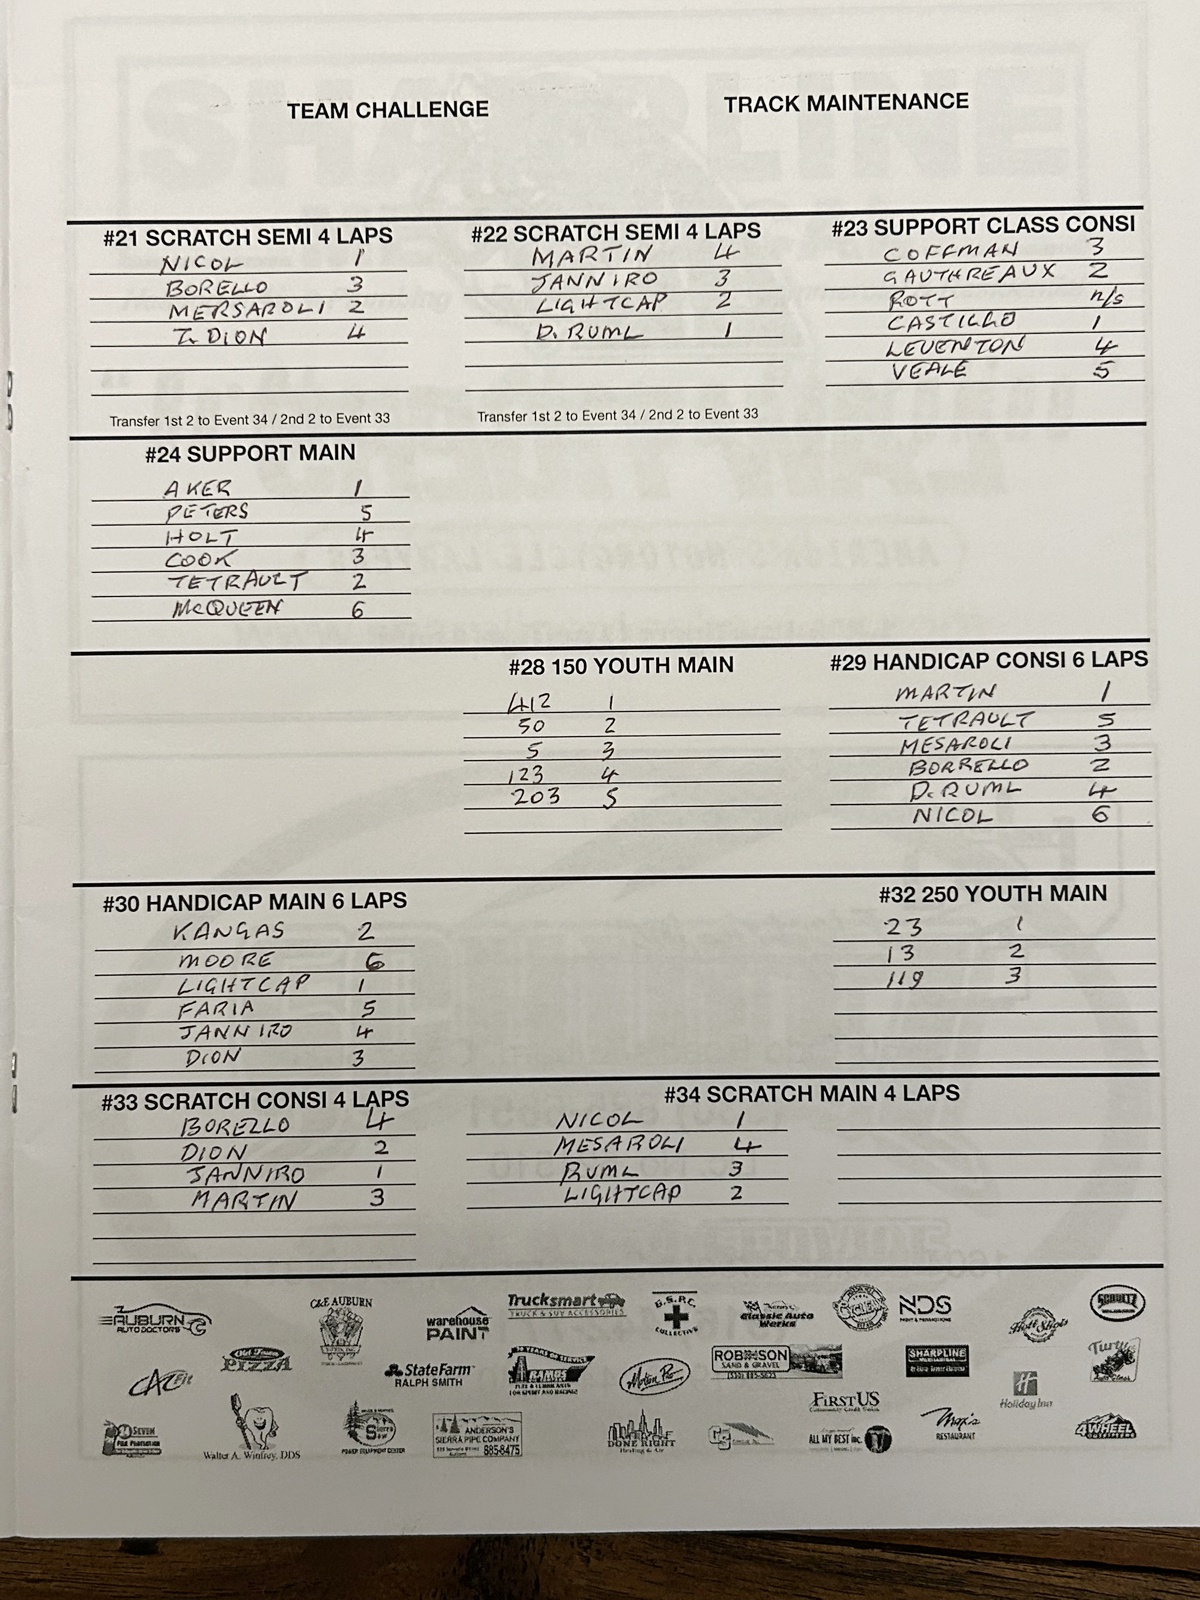 TEAM CHALLENGE
TRACK MAINTENANCE
#21 SCRATCH SEMI 4 LAPS
NICOL 1
BORELLO 3
MERSAROLI 2
Z. DION 4
Transfer 1st 2 to Event 34 / 2nd 2 to Event 33
#22 SCRATCH SEMI 4 LAPS
MARTIN 4
JANNIRO 3
LIGHTCAP 2
D. RUML 1
Transfer 1st 2 to Event 34 / 2nd 2 to Event 33
#23 SUPPORT CLASS CONSI
COFFMAN 3
GAUTHREAUX 2
ROTT n/s
CASTILLO 1
LEVENTON 4
VEALE 5
#24 SUPPORT MAIN
AKER 1
PETERS 5
HOLT 4
COOK 3
TETRAULT 2
McQUEEN 6
#28 150 YOUTH MAIN
412 1
50 2
5 3
123 4
203 5
#29 HANDICAP CONSI 6 LAPS
MARTIN 1
TETRAULT 5
MESAROLI 3
BORRELLO 2
D. RUML 4
NICOL 6
#30 HANDICAP MAIN 6 LAPS
KANGAS 2
MOORE 6
LIGHTCAP 1
FARIA 5
JANNIRO 4
DION 3
#32 250 YOUTH MAIN
23 1
13 2
119 3
#33 SCRATCH CONSI 4 LAPS
BORELLO 4
DION 2
JANNIRO 1
MARTIN 3
#34 SCRATCH MAIN 4 LAPS
NICOL 1
MESAROLI 4
RUML 3
LIGHTCAP 2
AUBURN
AUTO DOCTORS
C&E AUBURN
warehouse
PAINT
Trucksmart
TRUCK & SUV ACCESSORIES
G.S.P.C.
COLLECTIVE
Classic Auto
Werks
NDS
Hot Shots
SCHULTZ
Old Town
PIZZA
StateFarm
RALPH SMITH
RAMOS
ROBINSON
SAND & GRAVEL
SHARPLINE
Holiday Inn
SEVEN
Walter A. Winfrey, DDS
Sierra
POWER EQUIPMENT CENTER
ANDERSON'S
SIERRA PIPE COMPANY
885-8475
DONE RIGHT
Heating & Air
FIRST US
Community Credit Union
ALL MY BEST inc.
Max's
RESTAURANT
4WHEEL